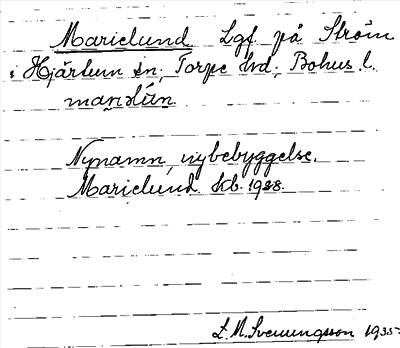 Marielund Lgf på Ström
i Hjärtum sn, Torpe hd, Bohus l.
Nynamn, nybebyggelse.
Marielund kb. 1928.
L. M. Svenungsson 1935